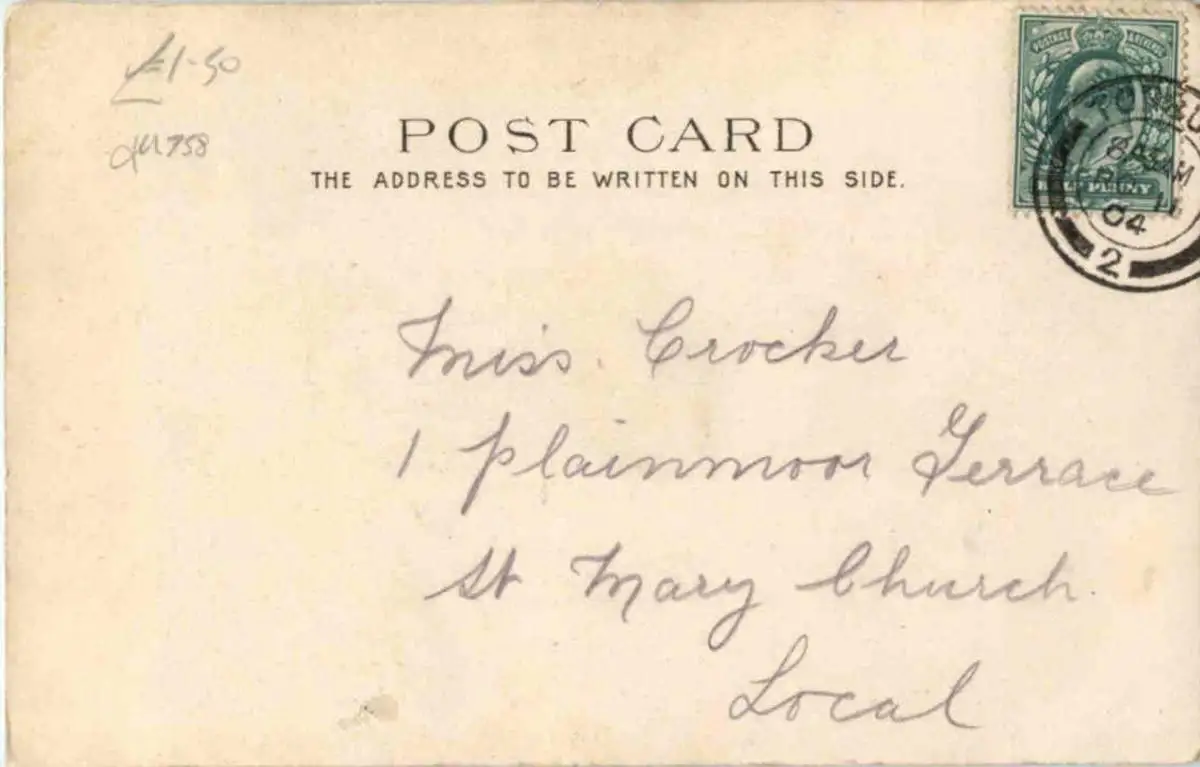 £1-50
POST CARD
THE ADDRESS TO BE WRITTEN ON THIS SIDE.
POSTAGE & REVENUE
HALF PENNY
04
2
Miss Crocker
1 Plainmoor Terrace
St Mary Church
Local